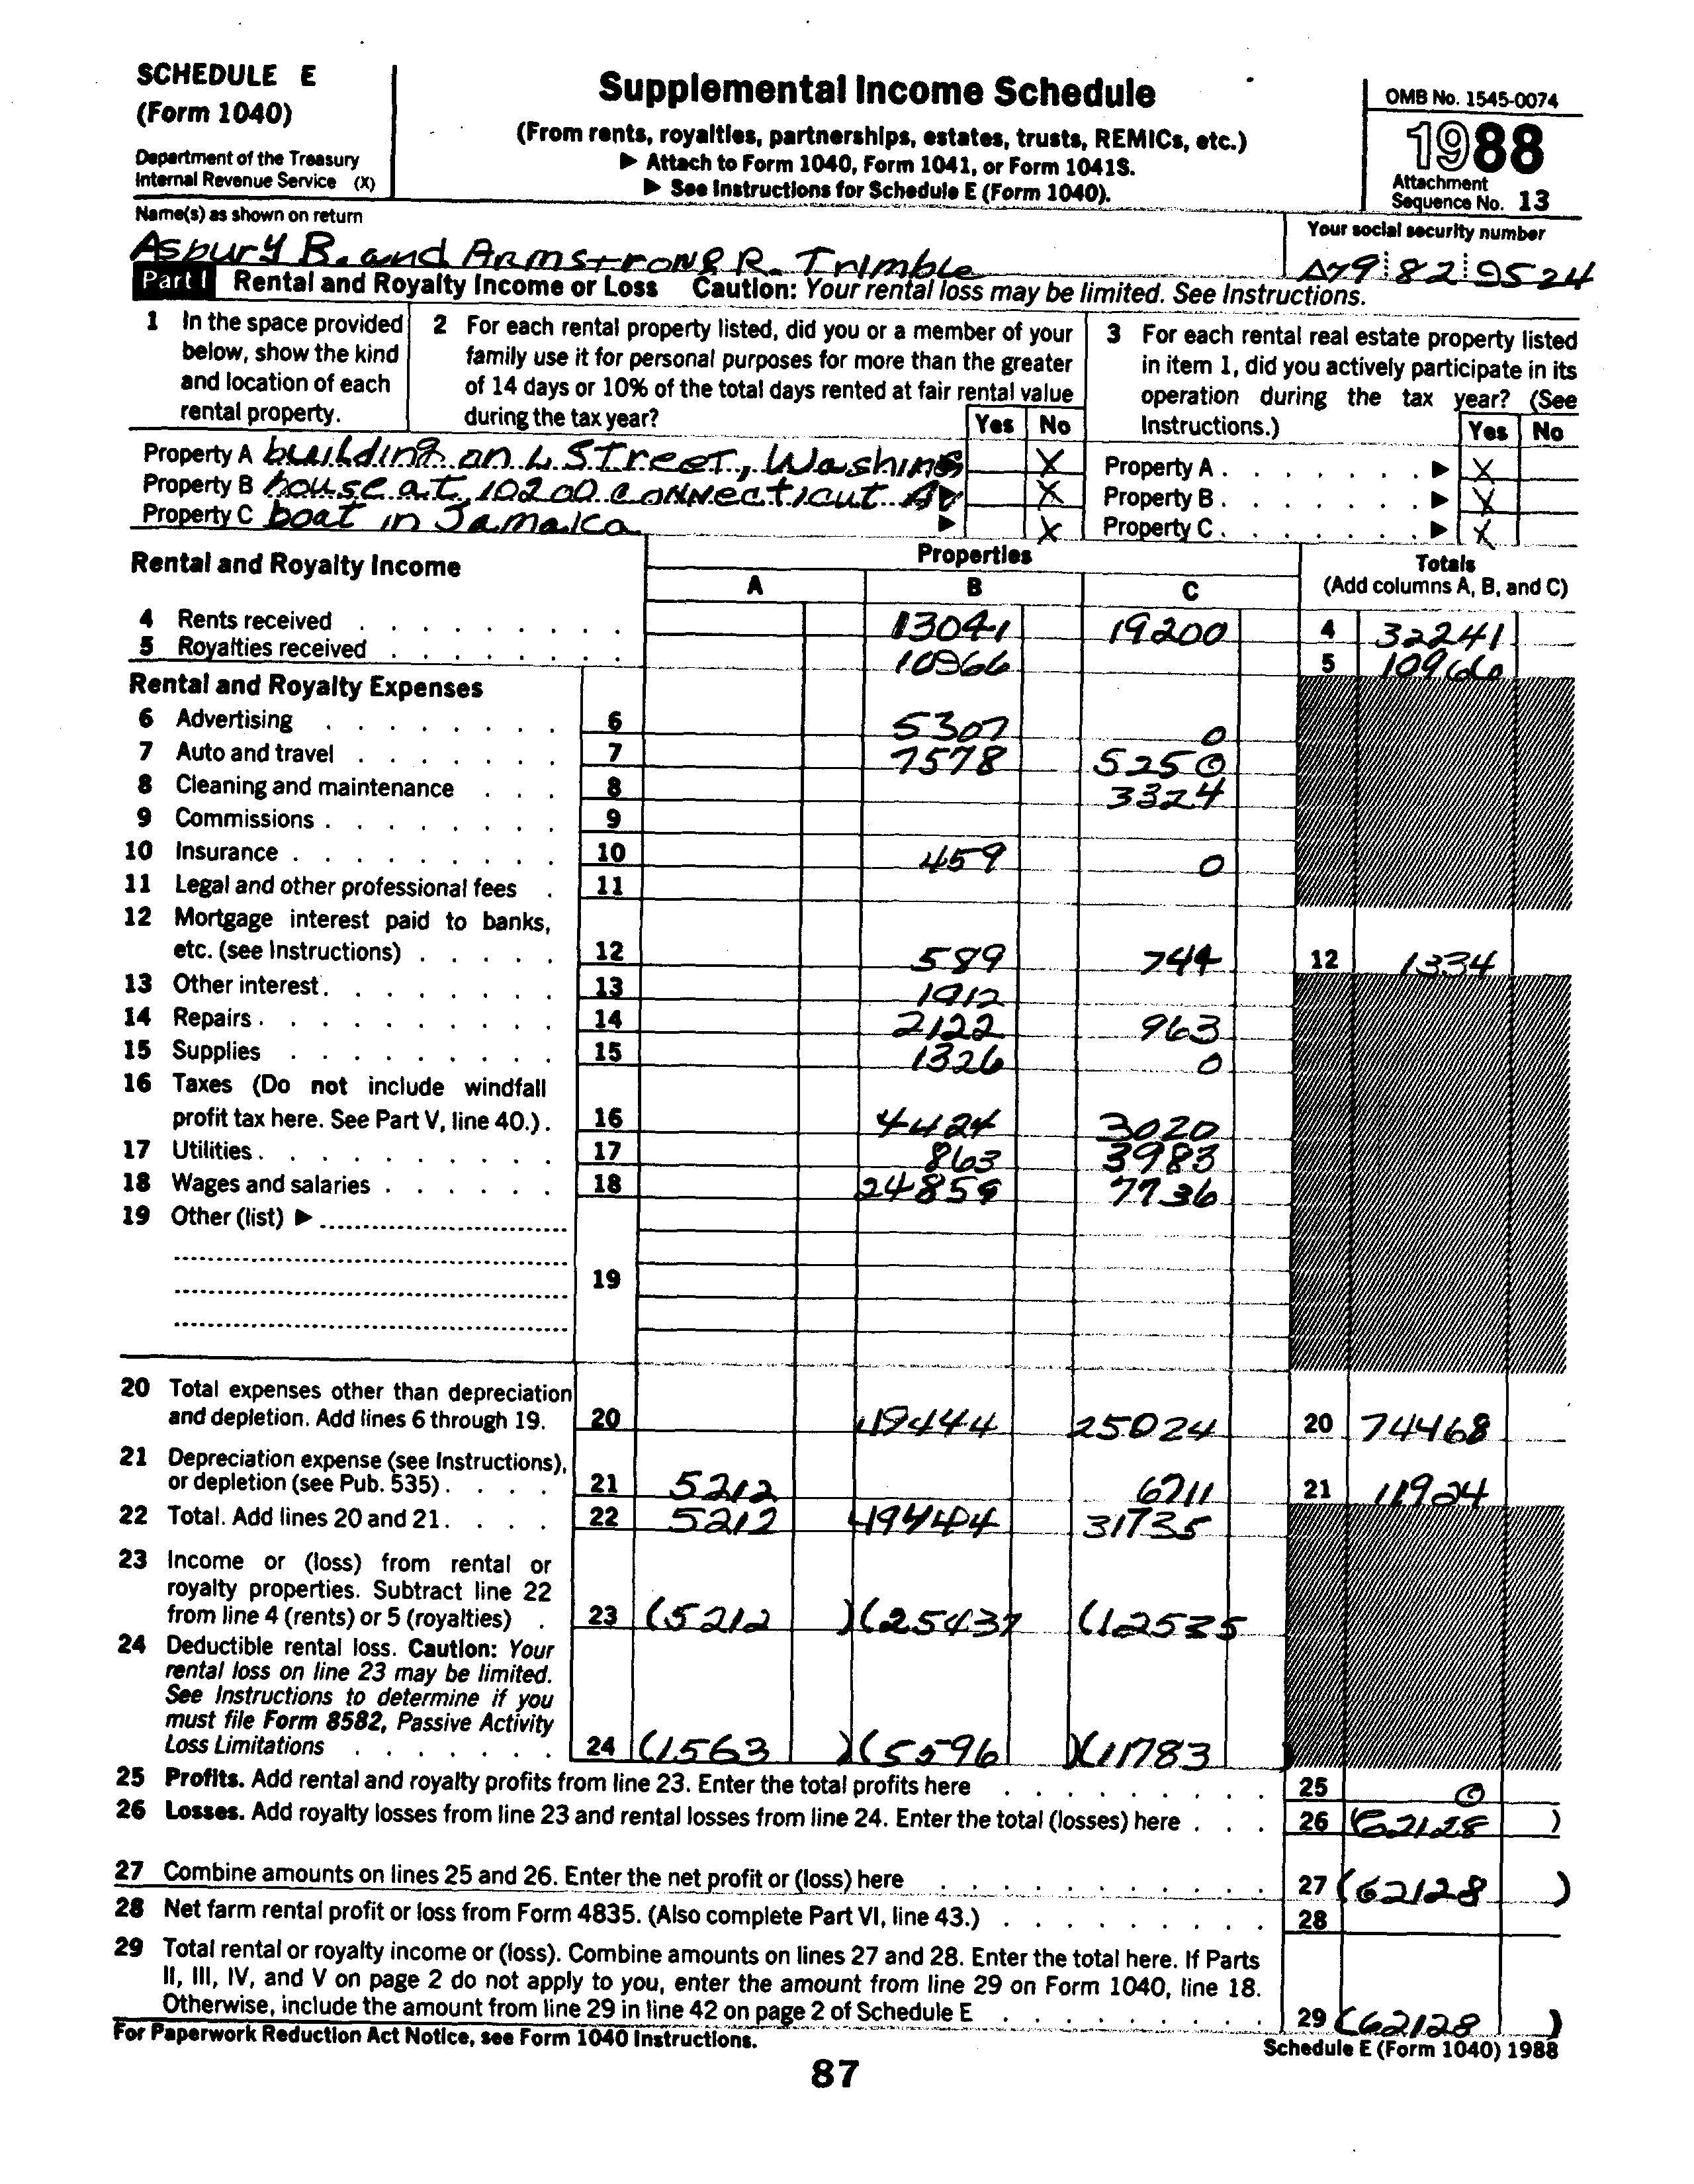 SCHEDULE E
(Form 1040)
Department of the Treasury
Internal Revenue Service (X)
Supplemental Income Schedule
(From rents, royalties, partnerships, estates, trusts, REMICs, etc.)
▶ Attach to Form 1040, Form 1041, or Form 1041S.
▶ See Instructions for Schedule E (Form 1040).
OMB No. 1545-0074
1988
Attachment
Sequence No. 13
Name(s) as shown on return
Asbury B. and Armstrong R. Trimble
Your social security number
82 9524
Part I Rental and Royalty Income or Loss Caution: Your rental loss may be limited. See Instructions.
1 In the space provided
below, show the kind
and location of each
rental property.
2 For each rental property listed, did you or a member of your
family use it for personal purposes for more than the greater
of 14 days or 10% of the total days rented at fair rental value
during the tax year?
Yes No
3 For each rental real estate property listed
in item 1, did you actively participate in its
operation during the tax year? (See
Instructions.)
Yes No
Property A building on L Street, Washing X
Property B house at 10200 Connecticut Av X
Property C boat in Jamaica ▶ X
Property A . . . . . . . ▶ X
Property B . . . . . . . ▶ X
Property C . . . . . . . ▶ X
Rental and Royalty Income
Properties
A B C
Totals
(Add columns A, B, and C)
4 Rents received 13041 19200 4 32241
5 Royalties received 10966 5 10966
Rental and Royalty Expenses
6 Advertising 6 5307 0
7 Auto and travel 7 7578 5250
8 Cleaning and maintenance 8 3324
9 Commissions 9
10 Insurance 10 459 0
11 Legal and other professional fees 11
12 Mortgage interest paid to banks,
etc. (see Instructions) 12 589 744 12 1334
13 Other interest 13 1912
14 Repairs 14 2122 963
15 Supplies 15 1326 0
16 Taxes (Do not include windfall
profit tax here. See Part V, line 40.) . 16 4424 3020
17 Utilities 17 863 3983
18 Wages and salaries 18 24859 7736
19 Other (list) ▶
19
20 Total expenses other than depreciation
and depletion. Add lines 6 through 19. 20 49444 25024 20 74468
21 Depreciation expense (see Instructions),
or depletion (see Pub. 535) 21 5212 6711 21 11924
22 Total. Add lines 20 and 21 22 5212 49444 31735
23 Income or (loss) from rental or
royalty properties. Subtract line 22
from line 4 (rents) or 5 (royalties) 23 (5212 ) (25437 (12535
24 Deductible rental loss. Caution: Your
rental loss on line 23 may be limited.
See Instructions to determine if you
must file Form 8582, Passive Activity
Loss Limitations 24 (1563 ) (5596 ) (11783 )
25 Profits. Add rental and royalty profits from line 23. Enter the total profits here 25 0
26 Losses. Add royalty losses from line 23 and rental losses from line 24. Enter the total (losses) here 26 (62128 )
27 Combine amounts on lines 25 and 26. Enter the net profit or (loss) here 27 (62128 )
28 Net farm rental profit or loss from Form 4835. (Also complete Part VI, line 43.) 28
29 Total rental or royalty income or (loss). Combine amounts on lines 27 and 28. Enter the total here. If Parts
II, III, IV, and V on page 2 do not apply to you, enter the amount from line 29 on Form 1040, line 18.
Otherwise, include the amount from line 29 in line 42 on page 2 of Schedule E 29 (62128 )
For Paperwork Reduction Act Notice, see Form 1040 Instructions.
Schedule E (Form 1040) 1988
87